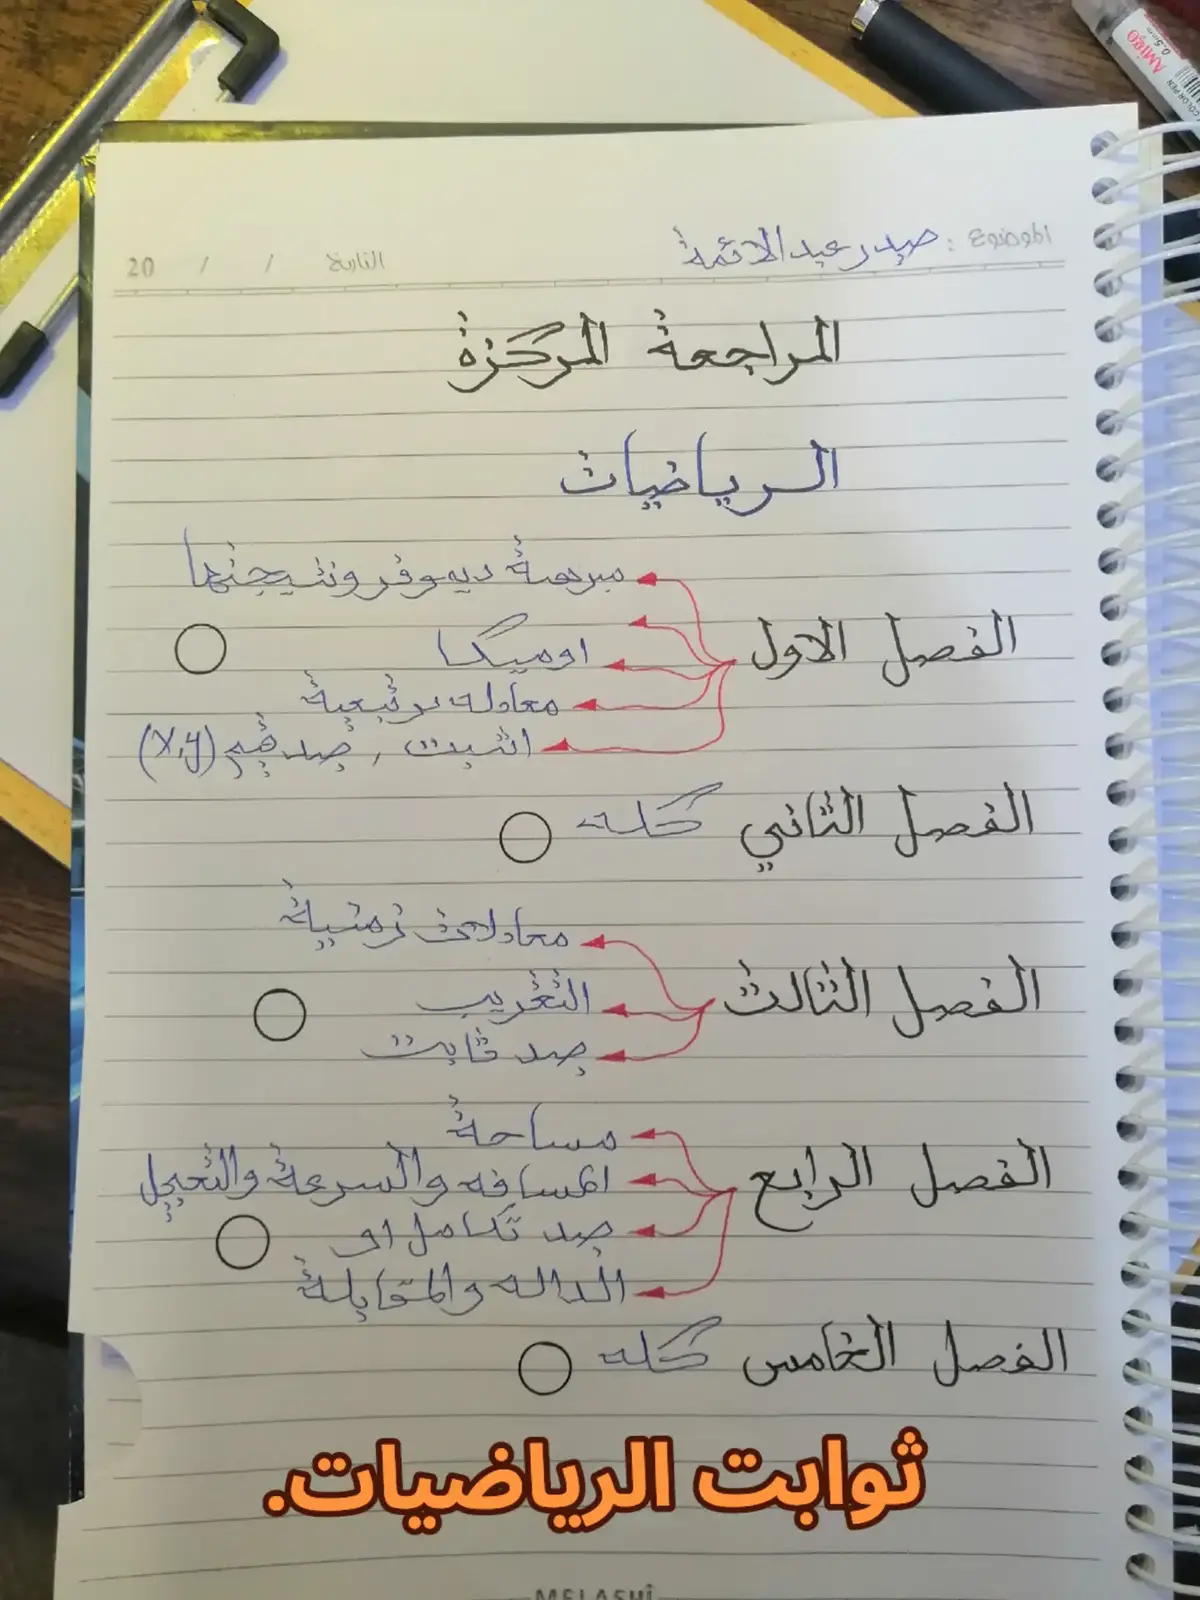 الموضوع : حيدر عبد الائمة
التاريخ / / 20
المراجعة المركزة
الرياضيات
الفصل الاول
مبرهنة ديموفر ونتيجتها
اوميكا
معادله تربيعية
اثبت , جد قيم (x,y)
الفصل الثاني كله
الفصل الثالث
معادلات زمنية
التقريب
جد ثابت
الفصل الرابع
مساحة
المسافه والسرعة والتعجيل
جد تكامل او
الداله والمقابلة
الفصل الخامس كله
ثوابت الرياضيات.
AMIGO
0.5mm
COLOR PEN